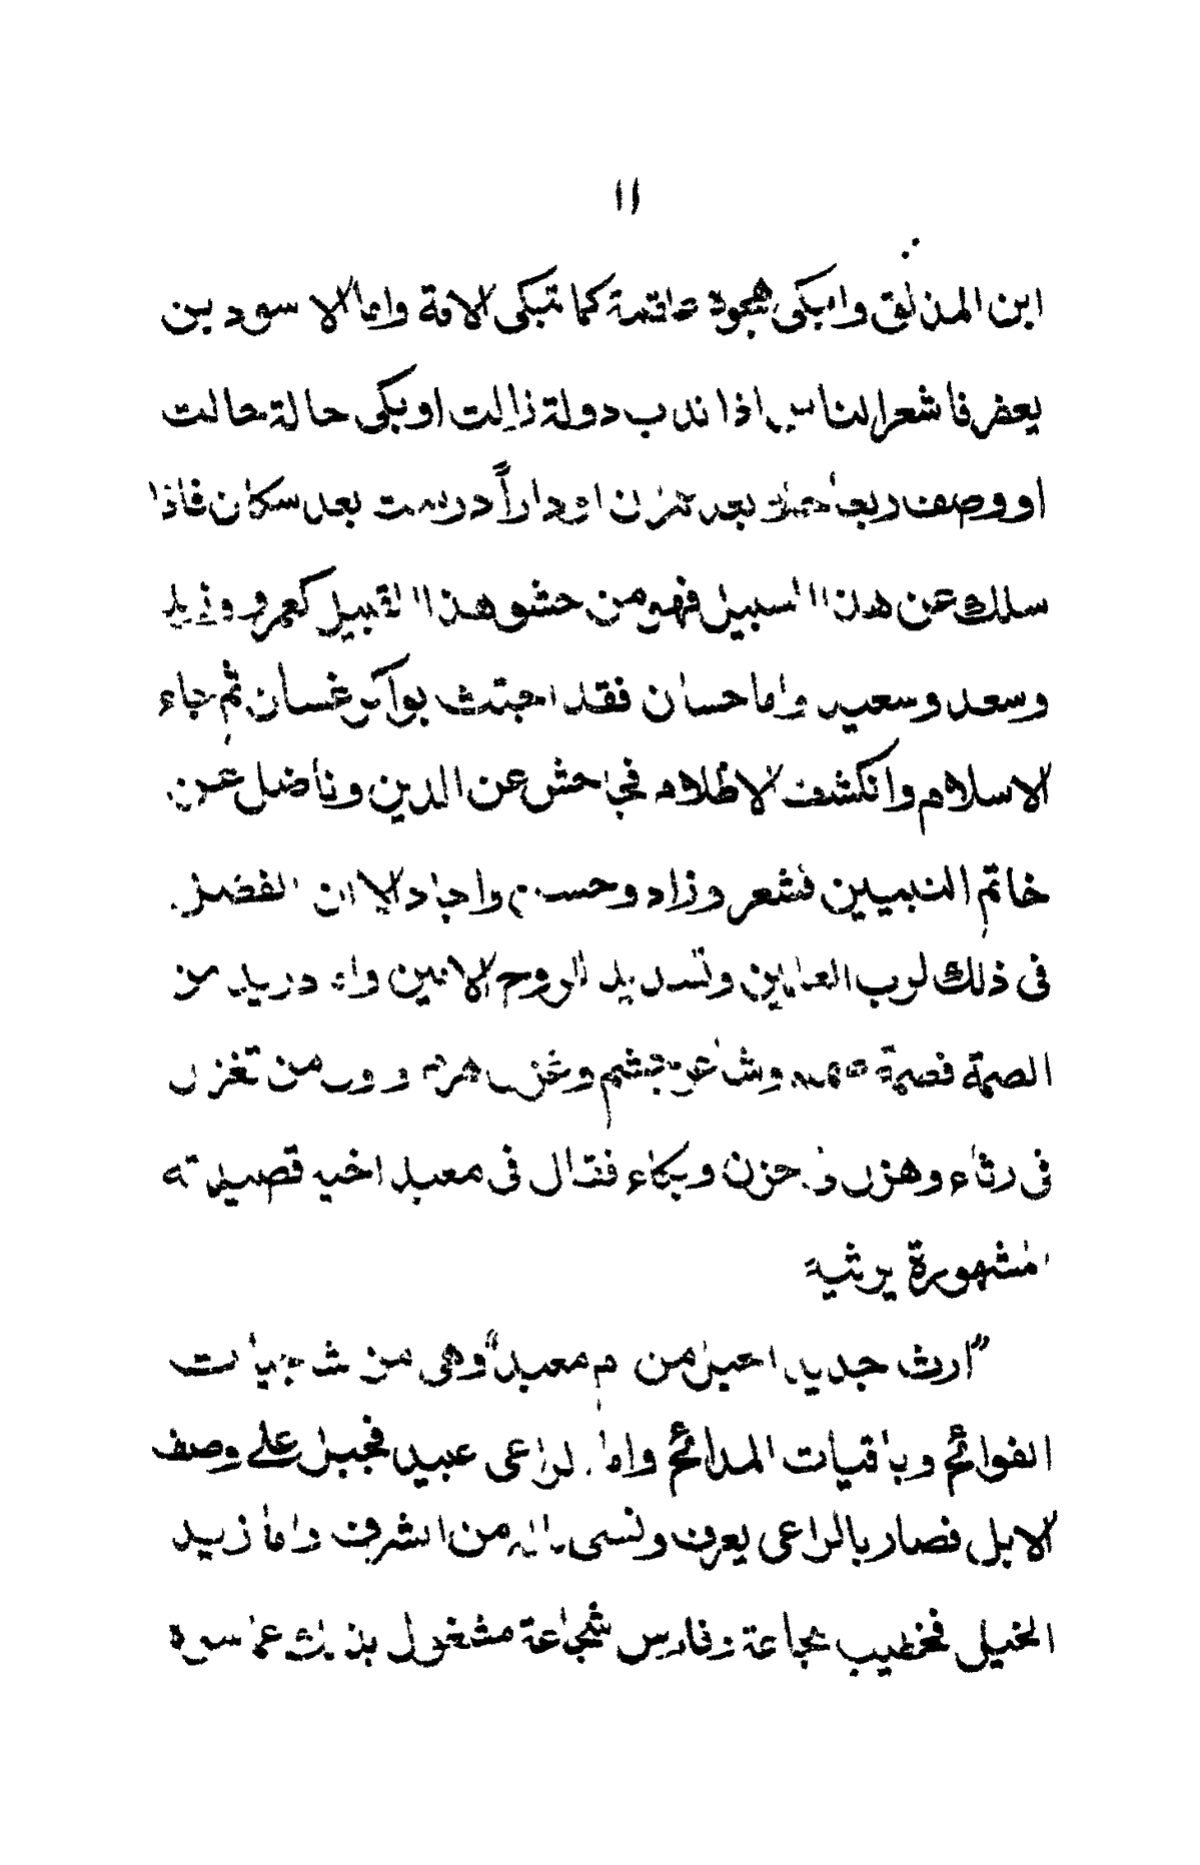 ١١
ابن المذلق وابكى هجوه علقمة كما تبكى الامة واما الاسود بن
يعفر فاشعر الناس اذا ندب دولة زالت او بكى حالة حالت
او وصف ربعا خلا بعد عمران او داراً درست بعد سكان فاذا
سلك عن هذا السبيل فهو من حشو هذا القبيل كعمرو وزيد
وسعد وسعيد واما حسان فقد اجتثت بواكر غسان ثم جاء
الاسلام وانكشف الاظلام فجاحش عن الدين وناضل عن
خاتم النبيين فشعر وزاد وحسن واجاد الا ان الفضل
فى ذلك لرب العلمين وتسديد الروح الامين واما دريد من
الصمة فصمة صمم وشاعر جشم وغزل هرم و اول من تغزل
فى رثاء وهزل فى حزن وبكاء فقال فى معبد اخيه قصيدته
المشهورة يرثيه
"ارث جديد الحبل من ام معبد" وهى من شاجيات
الفوائح وباقيات المدائح واما الراعى عبيد فجبل على وصف
الابل فصار بالراعى يعرف ونسى ماله من الشرف واما زيد
الخيل فخطيب سجاعة وفارس شجاعة مشغول بذلك عما سوه